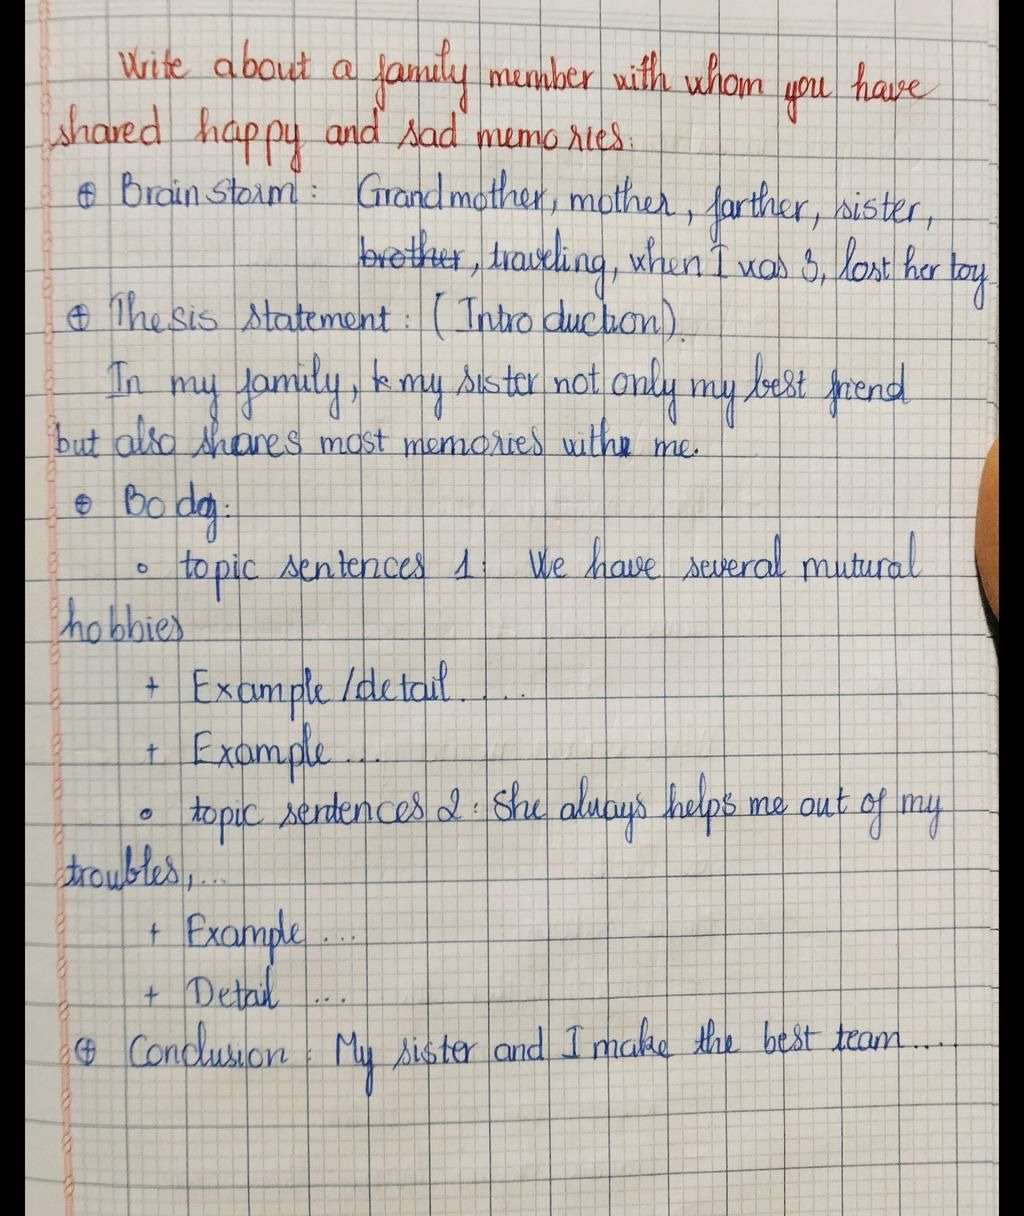 Write about a family member with whom you have
shared happy and sad memories.
⊕ Brainstorm: Grandmother, mother, farther, sister,
brother, traveling, when I was 3, lost her toy
⊕ Thesis statement: (Introduction).
In my family, my sister not only my best friend
but also shares most memories with me.
⊕ Body:
o topic sentences 1: We have several mutural
hobbies
+ Example/detail.....
+ Example...
o topic sentences 2: She always helps me out of my
troubles,...
+ Example ...
+ Detail ...
⊕ Conclusion: My sister and I make the best team....